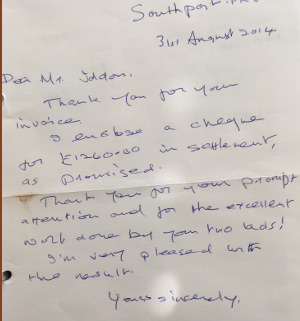 Southport.
31st August 2014
Dear Mr. Iddon.
Thank you for your
invoice.
I enclose a cheque
for £1260-00 in settlement,
as promised.
Thank you for your prompt
attention and for the excellent
work done by your two lads!
I'm very pleased with
the result.
Yours sincerely,